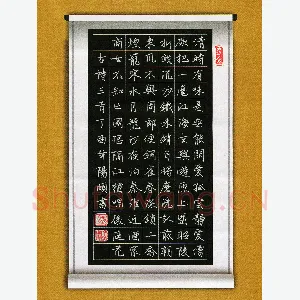 清時有味是無能閒愛孤雲靜愛僧
欲把一麾江海去樂遊原上望昭陵
折戟沉沙鐵未銷自將磨洗認前朝
東風不與周郎便銅雀春深鎖二喬
煙籠寒水月籠沙夜泊秦淮近酒家
商女不知亡國恨隔江猶唱後庭花
古詩三首丁酉陽書